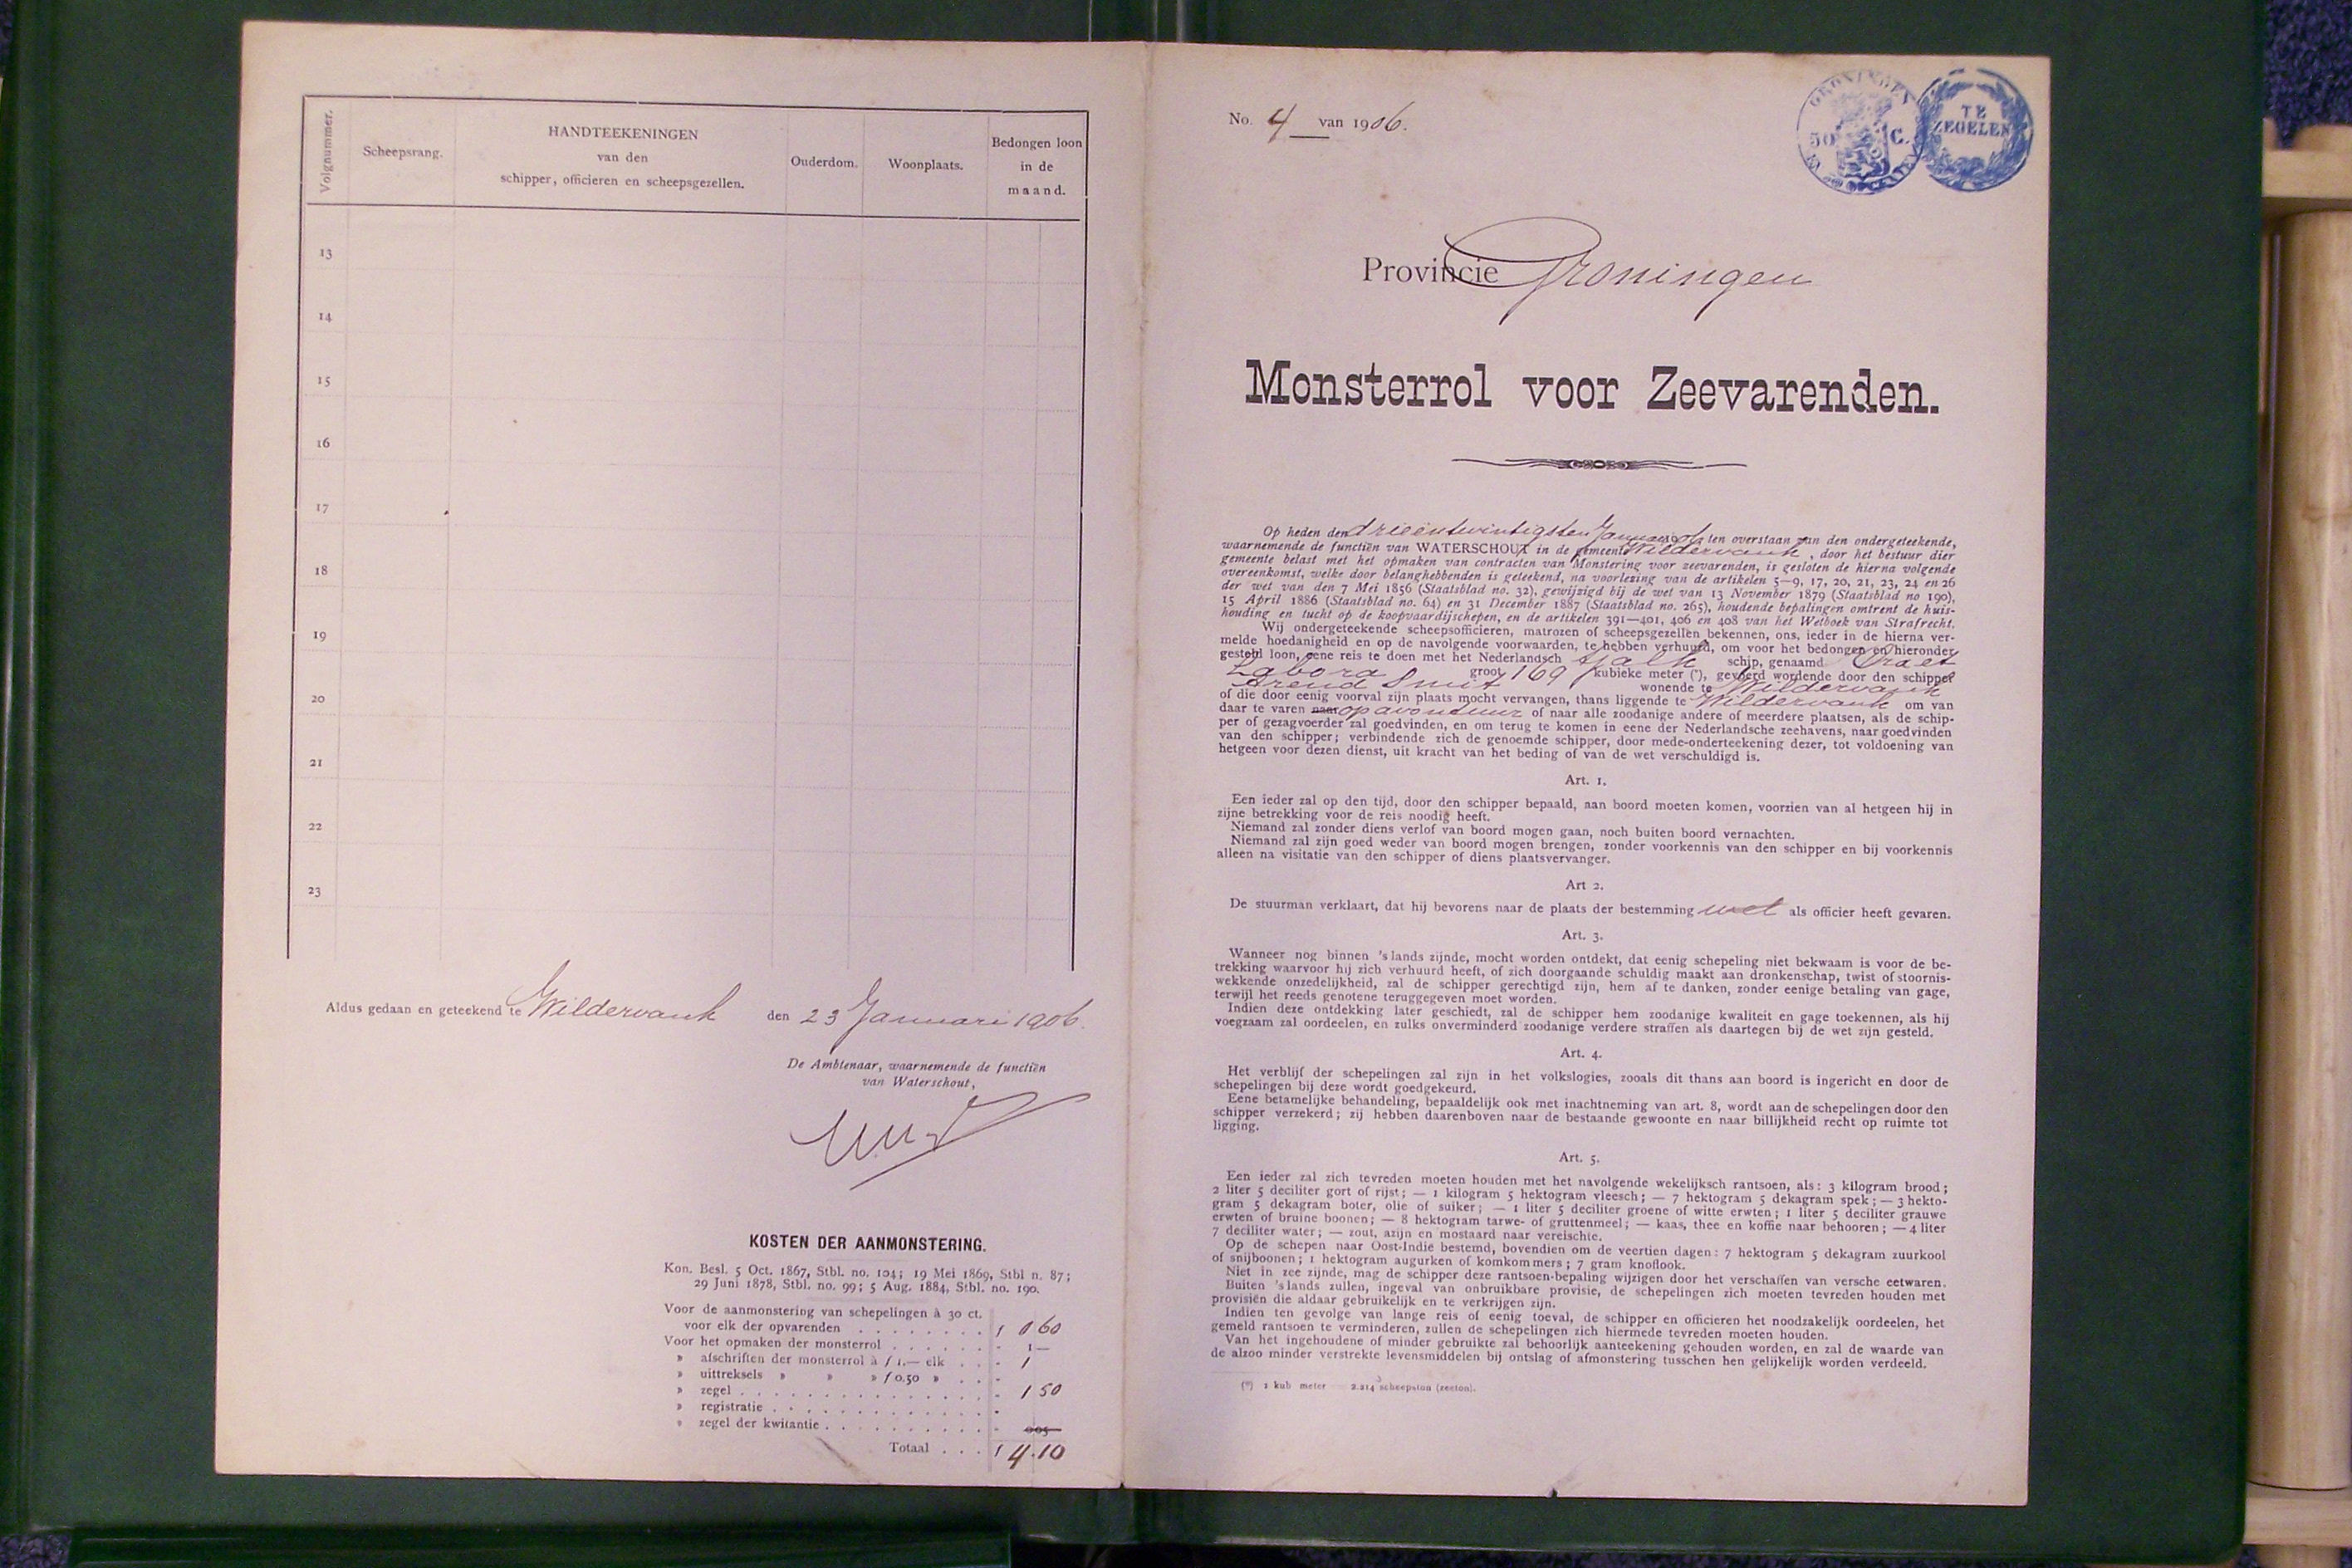 Volgnummer.
Scheepsrang.
HANDTEEKENINGEN
van den
schipper, officieren en scheepsgezellen.
Ouderdom.
Woonplaats.
Bedongen loon
in de
maand.
13
14
15
16
17
18
19
20
21
22
23
Aldus gedaan en geteekend te Wildervank den 23 Januari 1906.
De Ambtenaar, waarnemende de functiën
van Waterschout,
KOSTEN DER AANMONSTERING.
Kon. Besl. 5 Oct. 1867, Stbl. no. 104; 19 Mei 1869, Stbl n. 87;
29 Juni 1878, Stbl. no. 99; 5 Aug. 1884, Stbl. no. 190.
Voor de aanmonstering van schepelingen à 30 ct.
voor elk der opvarenden . . . . . . . . f 0 60
Voor het opmaken der monsterrol . . . . . . - 1 —
» afschriften der monsterrol à f 1.— elk . . - 1
» uittreksels » » » f 0.50 » . . -
» zegel . . . . . . . . . . . . . . . - 1 50
» registratie . . . . . . . . . . . . . -
» zegel der kwitantie . . . . . . . . . . - 005
Totaal . . . f 4.10
No. 4 van 1906.
GRONINGEN
50 C.
TE
ZEGELEN
Provincie Groningen
Monsterrol voor Zeevarenden.
Op heden den drieëntwintigsten Januari 1906 ten overstaan van den ondergeteekende,
waarnemende de functiën van WATERSCHOUT in de gemeente Wildervank, door het bestuur dier
gemeente belast met het opmaken van contracten van Monstering voor zeevarenden, is gesloten de hierna volgende
overeenkomst, welke door belanghebbenden is geteekend, na voorlezing van de artikelen 5—9, 17, 20, 21, 23, 24 en 26
der wet van den 7 Mei 1856 (Staatsblad no. 32), gewijzigd bij de wet van 13 November 1879 (Staatsblad no 190),
15 April 1886 (Staatsblad no. 64) en 31 December 1887 (Staatsblad no. 265), houdende bepalingen omtrent de huis-
houding en tucht op de koopvaardijschepen, en de artikelen 391—401, 406 en 408 van het Wetboek van Strafrecht.
Wij ondergeteekende scheepsofficieren, matrozen of scheepsgezellen bekennen, ons, ieder in de hierna ver-
melde hoedanigheid en op de navolgende voorwaarden, te hebben verhuurd, om voor het bedongen en hieronder
gesteld loon, eene reis te doen met het Nederlandsch tjalk schip, genaamd Ora et
Labora groot 169 kubieke meter (*), gevoerd wordende door den schipper
Arend Smit wonende te Wildervank
of die door eenig voorval zijn plaats mocht vervangen, thans liggende te Wildervank om van
daar te varen naar op avontuur of naar alle zoodanige andere of meerdere plaatsen, als de schip-
per of gezagvoerder zal goedvinden, en om terug te komen in eene der Nederlandsche zeehavens, naar goedvinden
van den schipper; verbindende zich de genoemde schipper, door mede-onderteekening dezer, tot voldoening van
hetgeen voor dezen dienst, uit kracht van het beding of van de wet verschuldigd is.
Art. 1.
Een ieder zal op den tijd, door den schipper bepaald, aan boord moeten komen, voorzien van al hetgeen hij in
zijne betrekking voor de reis noodig heeft.
Niemand zal zonder diens verlof van boord mogen gaan, noch buiten boord vernachten.
Niemand zal zijn goed weder van boord mogen brengen, zonder voorkennis van den schipper en bij voorkennis
alleen na visitatie van den schipper of diens plaatsvervanger.
Art 2.
De stuurman verklaart, dat hij bevorens naar de plaats der bestemming wel als officier heeft gevaren.
Art. 3.
Wanneer nog binnen 's lands zijnde, mocht worden ontdekt, dat eenig schepeling niet bekwaam is voor de be-
trekking waarvoor hij zich verhuurd heeft, of zich doorgaande schuldig maakt aan dronkenschap, twist of stoornis-
wekkende onzedelijkheid, zal de schipper gerechtigd zijn, hem af te danken, zonder eenige betaling van gage,
terwijl het reeds genotene teruggegeven moet worden.
Indien deze ontdekking later geschiedt, zal de schipper hem zoodanige kwaliteit en gage toekennen, als hij
voegzaam zal oordeelen, en zulks onverminderd zoodanige verdere straffen als daartegen bij de wet zijn gesteld.
Art. 4.
Het verblijf der schepelingen zal zijn in het volkslogies, zooals dit thans aan boord is ingericht en door de
schepelingen bij deze wordt goedgekeurd.
Eene betamelijke behandeling, bepaaldelijk ook met inachtneming van art. 8, wordt aan de schepelingen door den
schipper verzekerd; zij hebben daarenboven naar de bestaande gewoonte en naar billijkheid recht op ruimte tot
ligging.
Art. 5.
Een ieder zal zich tevreden moeten houden met het navolgende wekelijksch rantsoen, als: 3 kilogram brood;
2 liter 5 deciliter gort of rijst; — 1 kilogram 5 hektogram vleesch; — 7 hektogram 5 dekagram spek; — 3 hekto-
gram 5 dekagram boter, olie of suiker; — 1 liter 5 deciliter groene of witte erwten; 1 liter 5 deciliter grauwe
erwten of bruine boonen; — 8 hektogram tarwe- of gruttenmeel; — kaas, thee en koffie naar behooren; — 4 liter
7 deciliter water; — zout, azijn en mostaard naar vereischte.
Op de schepen naar Oost-Indië bestemd, bovendien om de veertien dagen: 7 hektogram 5 dekagram zuurkool
of snijboonen; 1 hektogram augurken of komkommers; 7 gram knoflook.
Niet in zee zijnde, mag de schipper deze rantsoen-bepaling wijzigen door het verschaffen van versche eetwaren.
Buiten 's lands zullen, ingeval van onbruikbare provisie, de schepelingen zich moeten tevreden houden met
provisiën die aldaar gebruikelijk en te verkrijgen zijn.
Indien ten gevolge van lange reis of eenig toeval, de schipper en officieren het noodzakelijk oordeelen, het
gemeld rantsoen te verminderen, zullen de schepelingen zich hiermede tevreden moeten houden.
Van het ingehoudene of minder gebruikte zal behoorlijk aanteekening gehouden worden, en zal de waarde van
de alzoo minder verstrekte levensmiddelen bij ontslag of afmonstering tusschen hen gelijkelijk worden verdeeld.
(*) 1 kub meter 2.214 scheepston (zeeton).